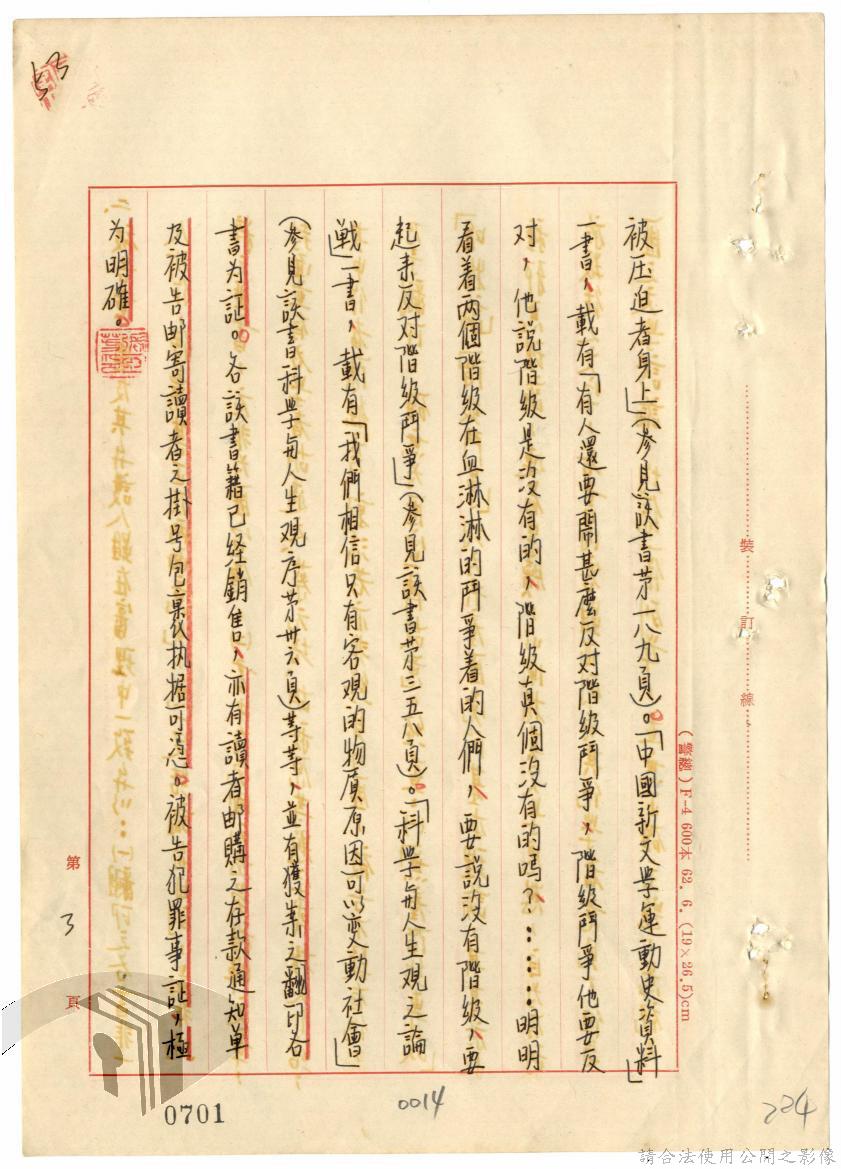 被压迫者身上」(参見該書第一八九頁)。「中國新文學運動史資料」
一書,載有「有人還要鬧甚麼反对階級鬥爭,階級鬥爭他要反
对,他説階級是没有的,階級真個没有的嗎?:::明明
看着两個階級在血淋淋的鬥爭着的人們,要説没有階級,要
起来反对階級鬥爭」(参見該書第三五八頁)。「科學与人生观之論
戰」一書,載有「我們相信只有客观的物质原因可以变動社會」
(参見該書科學与人生观序第卅六頁)等等,並有獲案之翻印各
書为証。各該書籍已经銷售,亦有讀者邮購之存款通知单
及被告邮寄讀者之掛号包裹执据可憑。被告犯罪事証,極
为明確。
二、
第3頁
裝訂線
F-4 600本 62. 6. (19×26.5)cm
0701
0014
224
請合法使用公開之影像